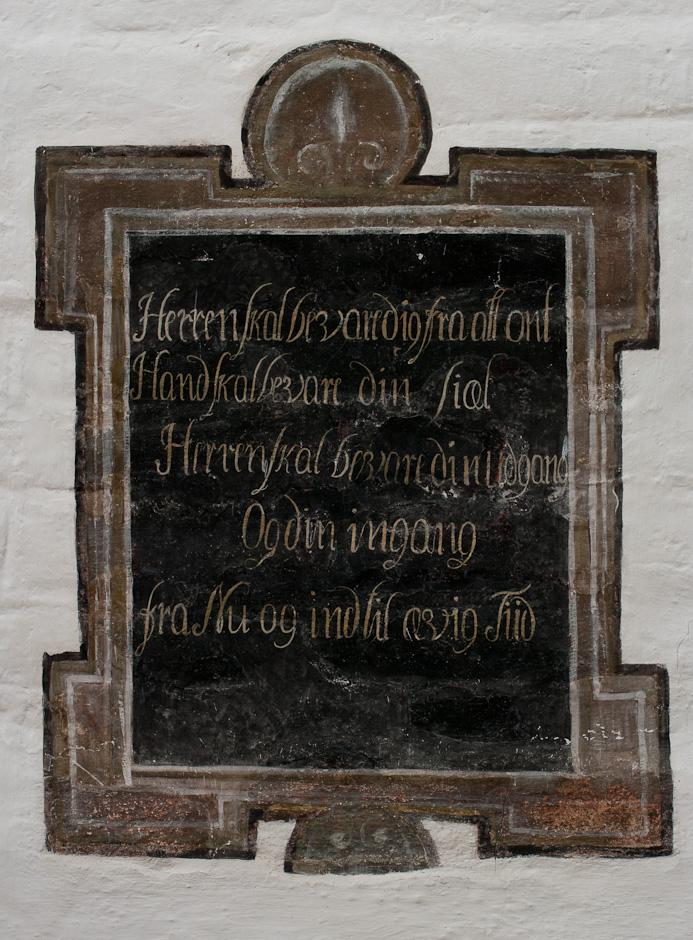 Herren skal bevare dig fra alt ont
Hand skal bevare din siæl
Herren skal bevare din Udgang
Og din ingang
fra Nu og indtil ævig Tiid